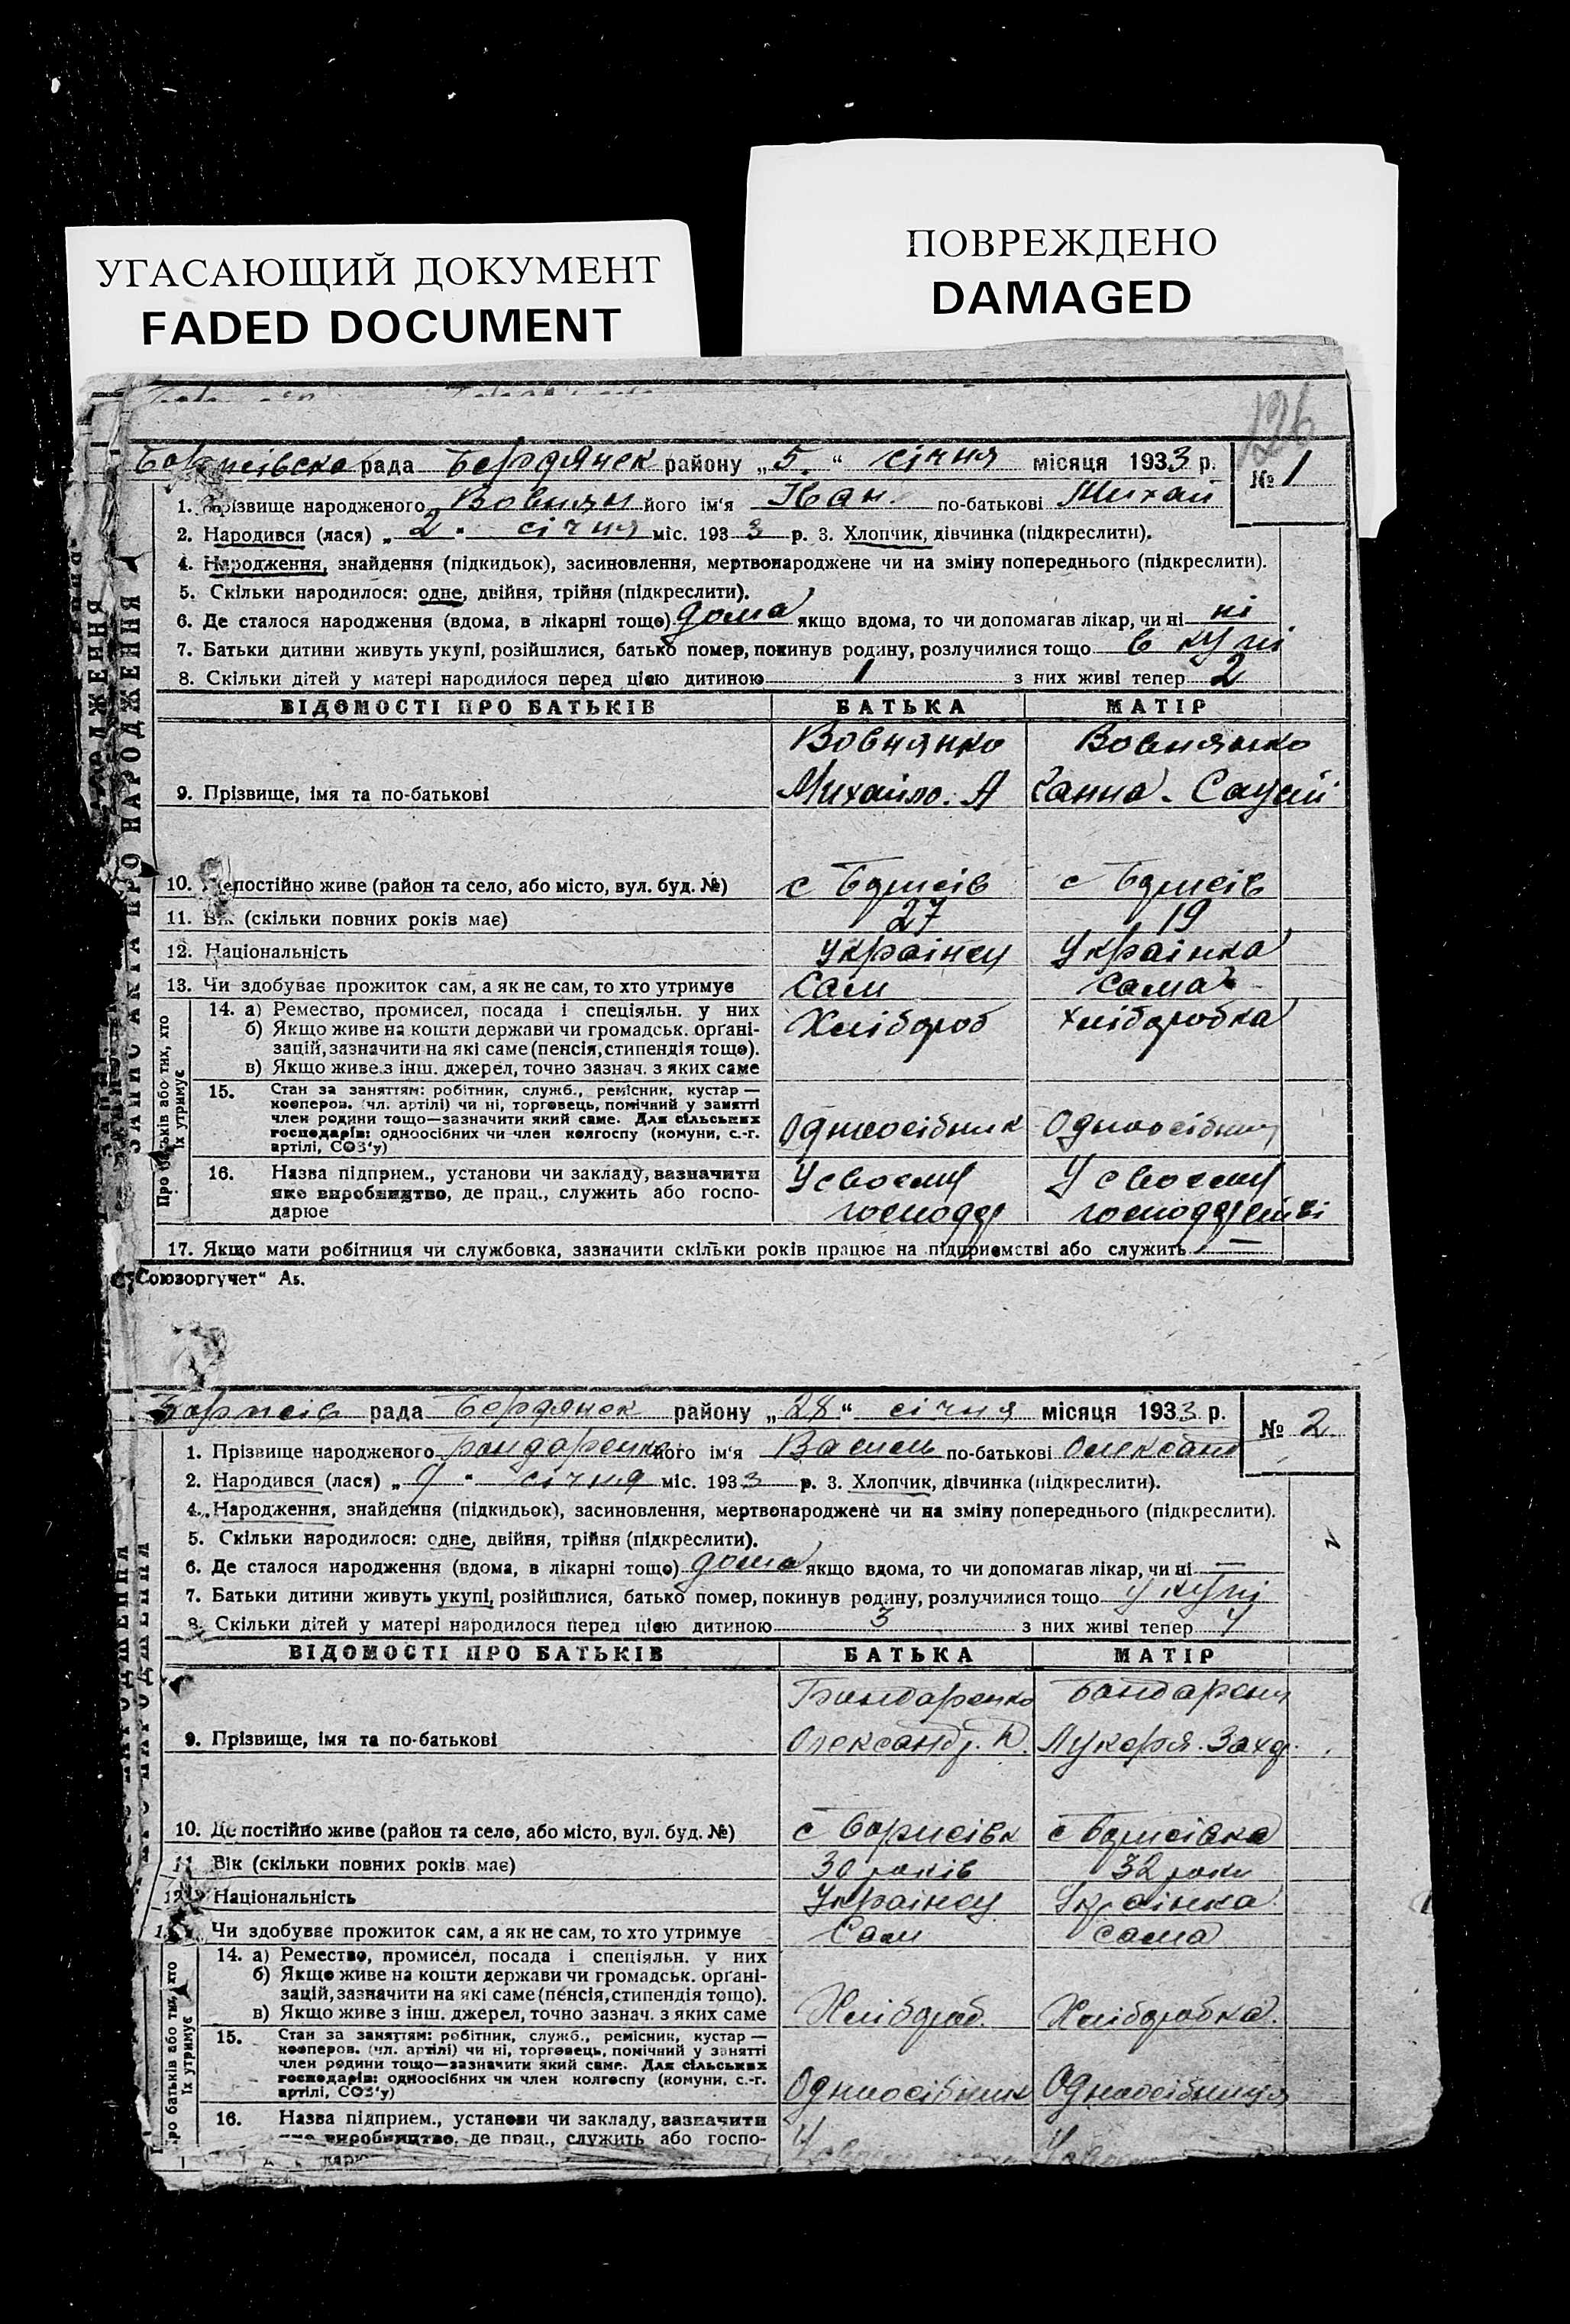 УГАСАЮЩИЙ ДОКУМЕНТ
FADED DOCUMENT
ПОВРЕЖДЕНО
DAMAGED
126
Борисівска рада Бердянск району „5.“ січня місяця 1933 р.
№ 1
1. Прізвище народженого Вовнян його ім'я Іван. по-батькові Михай
2. Народився (лася) „ 2 " січня міс. 1933 р. 3. Хлопчик, дівчинка (підкреслити).
4. Народження, знайдення (підкидьок), засиновлення, мертвонароджене чи на зміну попереднього (підкреслити).
5. Скільки народилося: одне, двійня, трійня (підкреслити).
6. Де сталося народження (вдома, в лікарні тощо) дома якщо вдома, то чи допомагав лікар, чи ні ні
7. Батьки дитини живуть укупі, розійшлися, батько помер, покинув родину, розлучилися тощо в купі
8. Скільки дітей у матері народилося перед цією дитиною 1 з них живі тепер 2
ВІДОМОСТІ ПРО БАТЬКІВ БАТЬКА МАТІР
Вовнянко Вовнянко
9. Прізвище, імя та по-батькові Михайло. А Ганна.
10. Де постійно живе (район та село, або місто, вул. буд. №) с Борисів с Борисів
11. Вік (скільки повних років має) 27 19
12. Національність Українец Українка
13. Чи здобуває прожиток сам, а як не сам, то хто утримує Сам Сама
Про батьків або тих, хто їх утримує
14. а) Ремество, промисел, посада і спеціяльн. у них Хлібороб Хліборобка
б) Якщо живе на кошти держави чи громадськ. орґані-
зацій, зазначити на які саме (пенсія, стипендія тощо).
в) Якщо живе з інш. джерел, точно зазнач. з яких саме
15. Стан за заняттям: робітник, служб., ремісник, кустар —
кооперов. (чл. артілі) чи ні, торговець, помічний у занятті
член родини тощо—зазначити який саме. Для сільських
господарів: одноосібних чи член колгоспу (комуни, с.-г. Одноосібник Одноосібниц
артілі, СОЗ'у)
16. Назва підприєм., установи чи закладу, зазначити У своєму У своєму
яке виробництво, де прац., служить або госпо-
дарює господар господарстві
17. Якщо мати робітниця чи службовка, зазначити скільки років працює на підприємстві або служить —
„Союзоргучет“ Аз.
ЗАПИС АКТА ПРО НАРОДЖЕННЯ
Борисів рада Бердянск району „28“ січня місяця 1933 р.
№ 2
1. Прізвище народженого Бондаренко його ім'я Василь по-батькові Олександ
2. Народився (лася) „ 9 " січня міс. 1933 р. 3. Хлопчик, дівчинка (підкреслити).
4. Народження, знайдення (підкидьок), засиновлення, мертвонароджене чи на зміну попереднього (підкреслити).
5. Скільки народилося: одне, двійня, трійня (підкреслити).
6. Де сталося народження (вдома, в лікарні тощо) дома якщо вдома, то чи допомагав лікар, чи ні —
7. Батьки дитини живуть укупі, розійшлися, батько помер, покинув родину, розлучилися тощо у купі
8. Скільки дітей у матері народилося перед цією дитиною 3 з них живі тепер
ВІДОМОСТІ ПРО БАТЬКІВ БАТЬКА МАТІР
Бондаренко Бондарен
9. Прізвище, імя та по-батькові Олександр. Лукеря. Захар.
10. Де постійно живе (район та село, або місто, вул. буд. №) с Борисівк с Борисівка
11. Вік (скільки повних років має) 30 років 32 роки
12. Національність Українец Українка
Чи здобуває прожиток сам, а як не сам, то хто утримує Сам сама
Про батьків або тих, хто їх утримує
14. а) Ремество, промисел, посада і спеціяльн. у них
б) Якщо живе на кошти держави чи громадськ. орґані-
зацій, зазначити на які саме (пенсія, стипендія тощо).
в) Якщо живе з інш. джерел, точно зазнач. з яких саме Хлібороб. Хліборобка.
15. Стан за заняттям: робітник, служб., ремісник, кустар —
кооперов. (чл. артілі) чи ні, торговець, помічний у занятті
член родини тощо—зазначити який саме. Для сільських
господарів: одноосібних чи член колгоспу (комуни, с.-г.
артілі, СОЗ'у) Одноосібник Одноосібниця
16. Назва підприєм., установи чи закладу, зазначити
яке виробництво, де прац., служить або госпо-